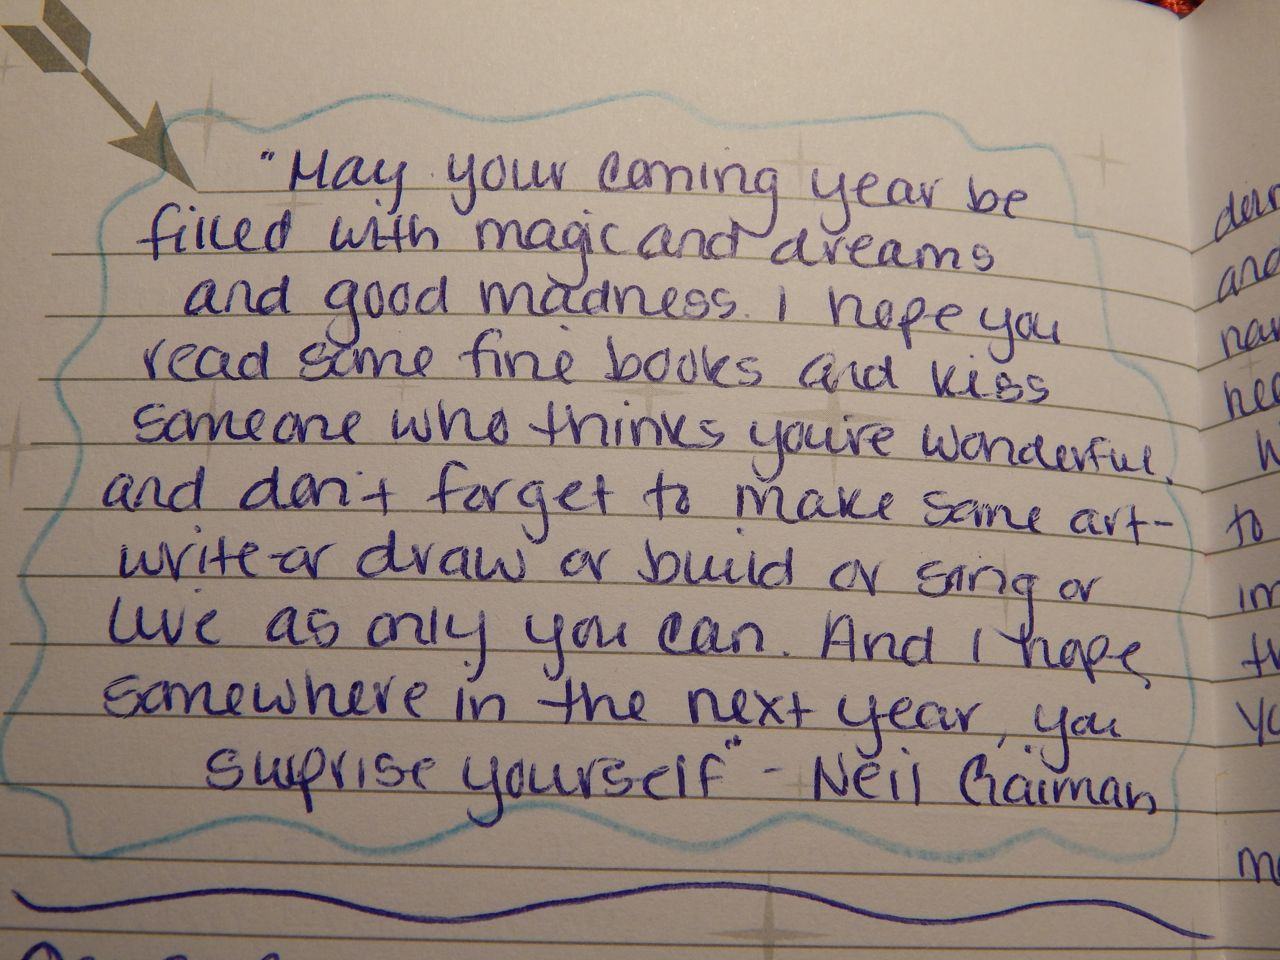 "May your coming year be
filled with magic and dreams
and good madness. I hope you
read some fine books and kiss
someone who thinks you're wonderful,
and don't forget to make some art-
write or draw or build or sing or
live as only you can. And I hope,
somewhere in the next year, you
surprise yourself" - Neil Gaiman
and
to